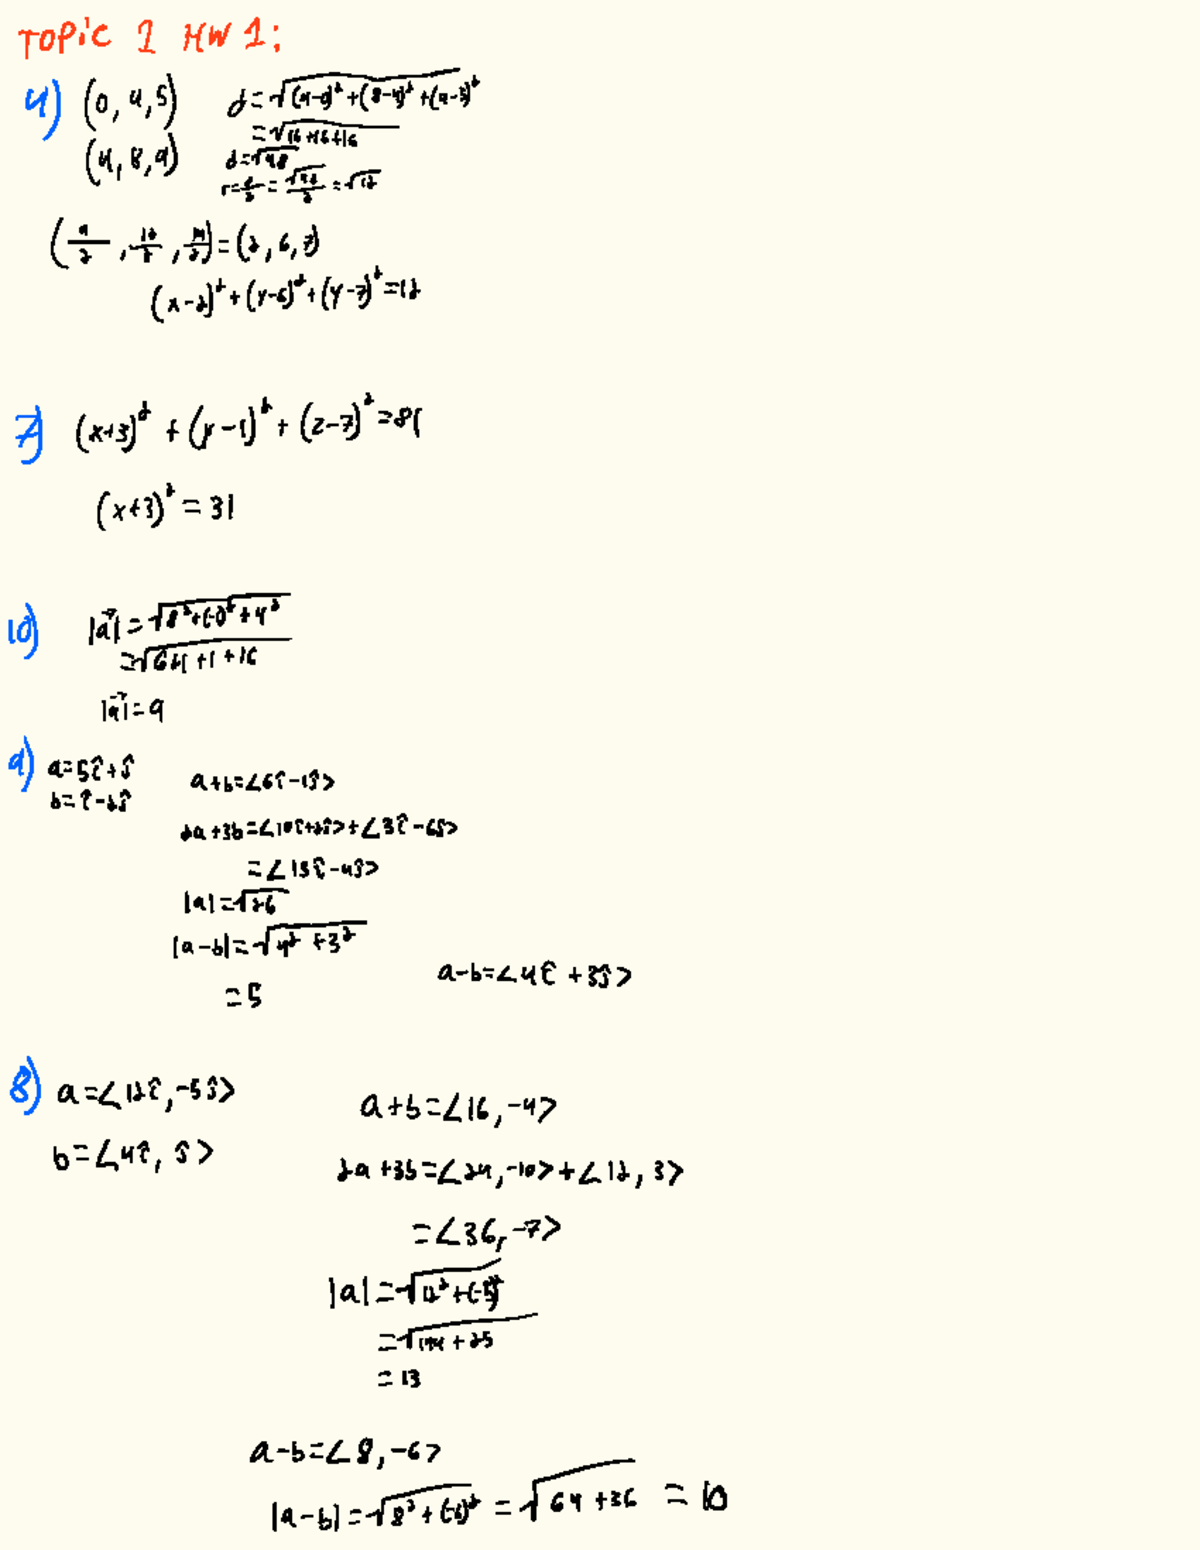 TOPIC 1 HW 1:
4) (0, 4, 5) d = √((4-0)² + (8-4)² + (9-5)²)
= √(16+16+16)
(4, 8, 9) d = √48
r = d/2 = √48/2 = √12
(4/2, 12/2, 14/2) = (2, 6, 7)
(x-2)² + (y-6)² + (y-7)² = 12
7) (x+3)² + (y-1)² + (z-7)² = 81
(x+3)² = 31
10) |a⃗| = √(8² + (-1)² + 4²)
= √(64 + 1 + 16)
|a⃗| = 9
9) a = 5î + ĵ
b = î - 2ĵ a+b = <6î - 1ĵ>
2a + 3b = <10î + 2ĵ> + <3î - 6ĵ>
= <13î - 4ĵ>
|a| = √26
|a-b| = √(4² + 3²)
a-b = <4î + 3ĵ>
= 5
8) a = <12î, -5ĵ> a+b = <16, -4>
b = <4î, ĵ> 2a + 3b = <24, -10> + <12, 3>
= <36, -7>
|a| = √(12² + (-5)²)
= √(144 + 25)
= 13
a-b = <8, -6>
|a-b| = √(8² + (-6)²) = √(64 + 36) = 10